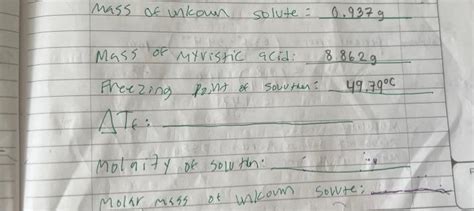 Mass of unkown solute: 0.937g
Mass of myristic acid: 8.862g
Freezing point of solution: 49.79°C
ΔTf:
Molality of solution:
Molar mass of unkown solute: